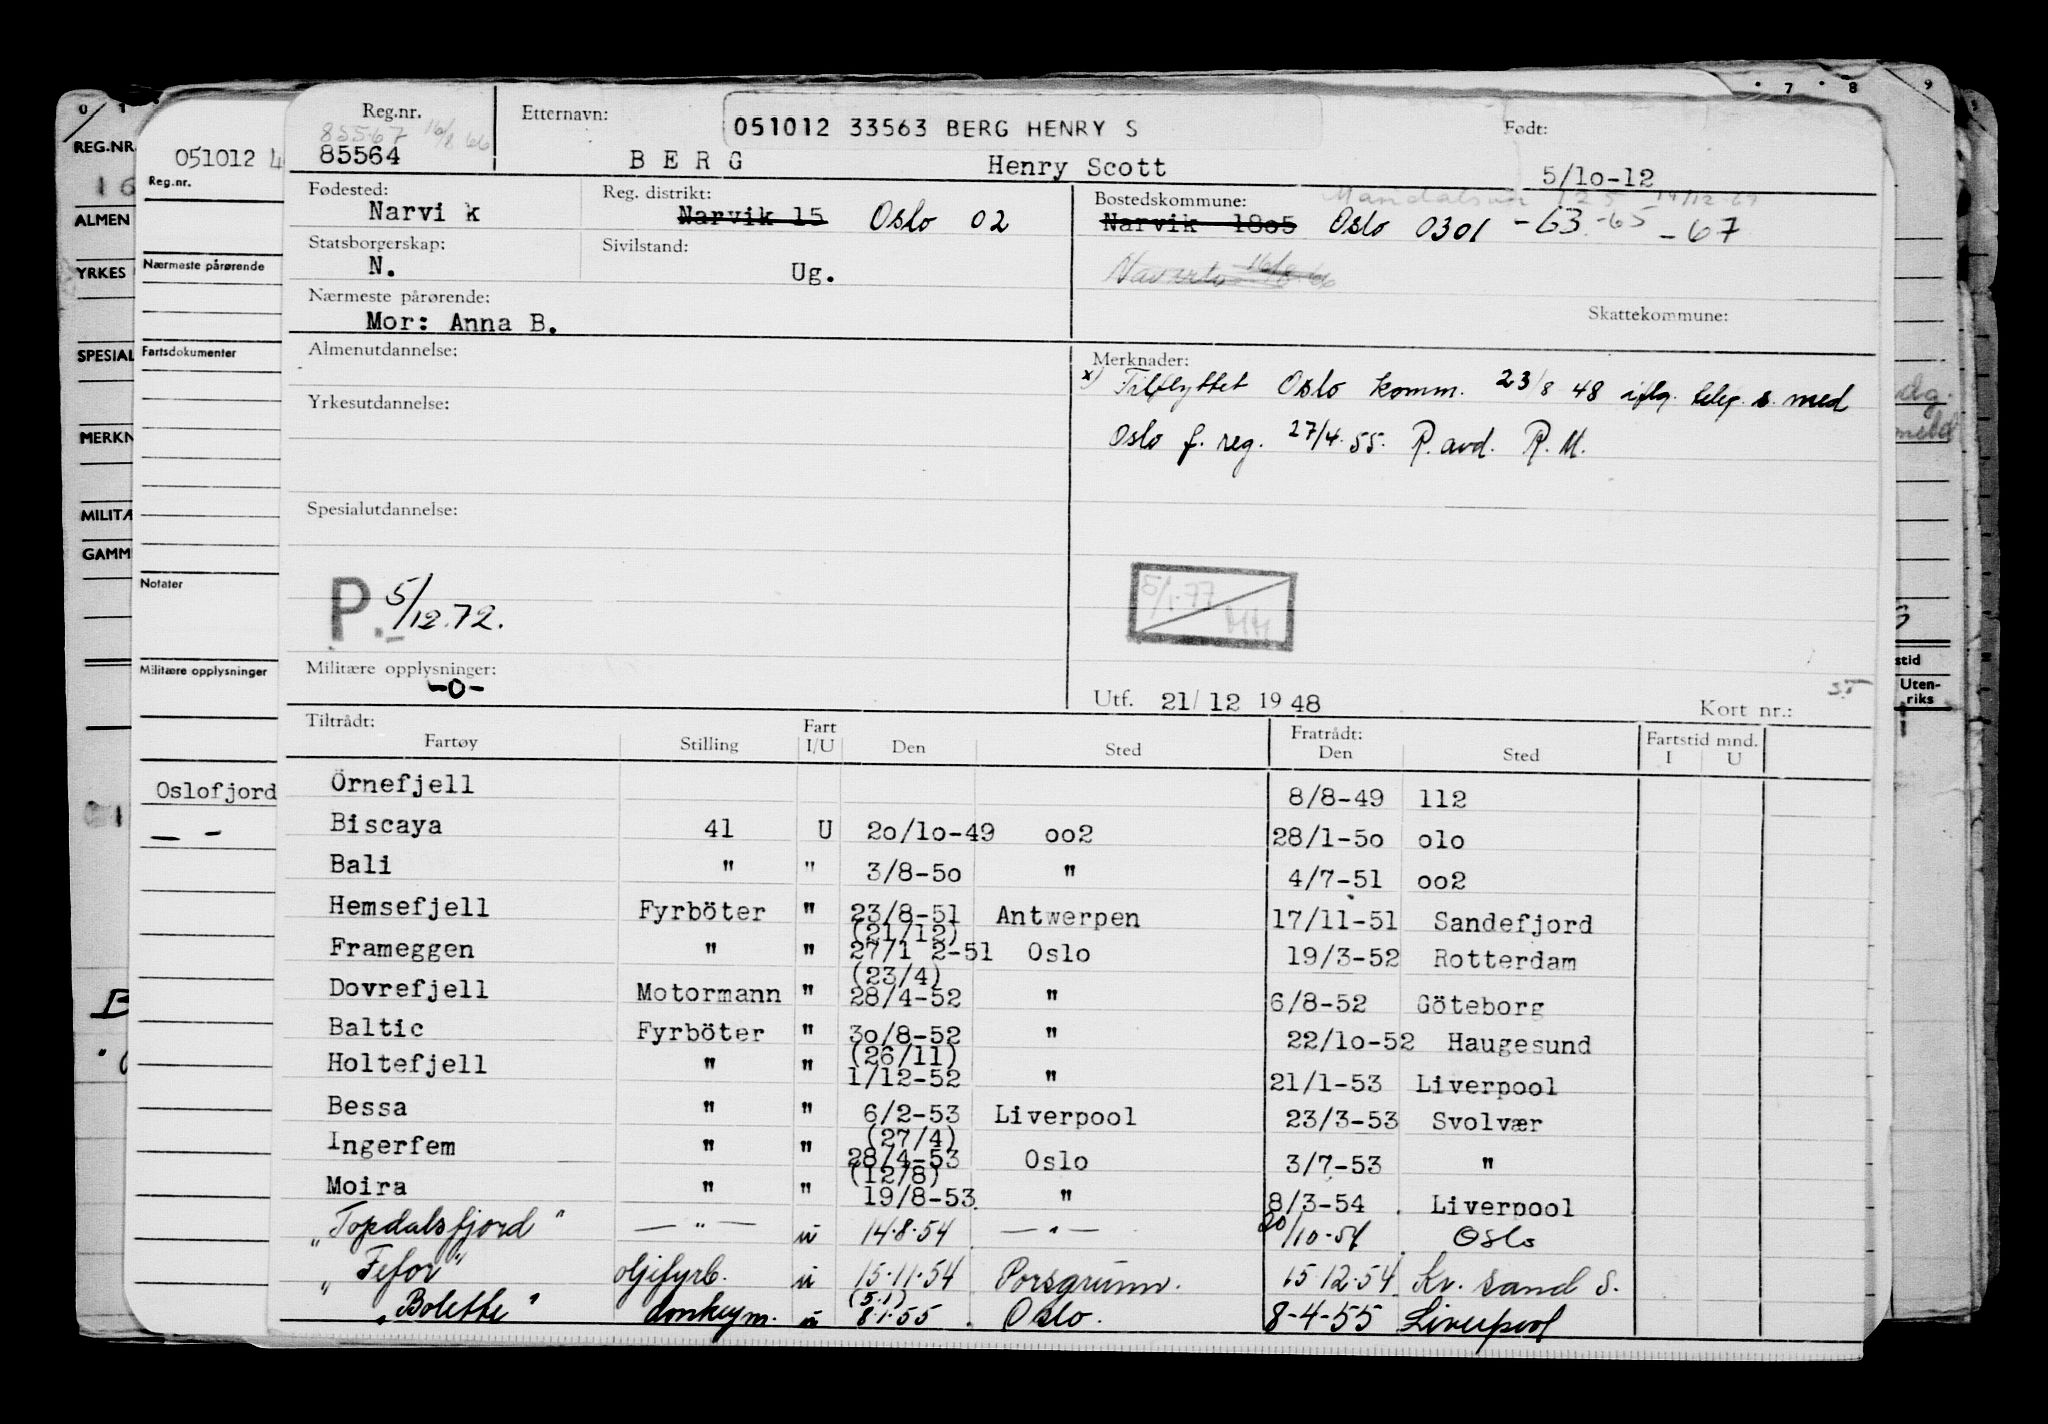 0 1 7 8 9
REG.NR.
16
ALMEN
YRKES
SPESIAL
MERKN
MILITÆ
GAMM
051012 4
Reg.nr.
Nærmeste pårørende
Fartsdokumenter
Notater
Militære opplysninger
Oslofjord
— –
Reg.nr. Etternavn: 051012 33563 BERG HENRY S Født:
85567 16/8 66
85564 B E R G Henry Scott 5/10-12
Fødested: Reg. distrikt: Bostedskommune: 125
Narvi k Narvik 15 Oslo 02 Narvik 1805 Oslo 0301 -63 -65 -67
Statsborgerskap: Sivilstand:
N. Ug. 16/8 66
Nærmeste pårørende: Skattekommune:
Mor: Anna B.
Almenutdannelse: Merknader:
x) Tilflyttet Oslo komm. 23/8 48 iflg. telef. s. med
Yrkesutdannelse:
Oslo f. reg. 27/4.55. P. avd. R. M.
Spesialutdannelse:
P. 5/12.72. 5/1.77 MH
Militære opplysninger:
-0-
Utf. 21/12 1948 Kort nr.:
stid
Uten-
riks
Tiltrådt: Fart Fratrådt: Fartstid mnd.
Fartøy Stilling I/U Den Sted Den Sted I U
Örnefjell 8/8-49 112
Biscaya 41 U 20/10-49 002 28/1-50 010
Bali " " 3/8-50 " 4/7-51 002
Hemsefjell Fyrböter " 23/8-51 Antwerpen 17/11-51 Sandefjord
(21/12)
Frameggen " " 27/1 2-51 Oslo 19/3-52 Rotterdam
(23/4)
Dovrefjell Motormann " 28/4-52 " 6/8-52 Göteborg
Baltic Fyrböter " 30/8-52 " 22/10-52 Haugesund
(26/11)
Holtefjell " " 1/12-52 " 21/1-53 Liverpool
Bessa " " 6/2-53 Liverpool 23/3-53 Svolvær
(27/4)
Ingerfem " " 28/4-53 Oslo 3/7-53 "
(12/8)
Moira " " 19/8-53 " 8/3-54 Liverpool
"Topdalsfjord" — " — u 14.8.54 — " — 20/10.54 Oslo
"Fefor" oljefyrb. u 15.11.54 Porsgrunn. 15 12.54 Kr. sand S.
(5.1)
"Bolette" donkeym. u 8.1.55 Oslo. 8-4-55 Liverpool